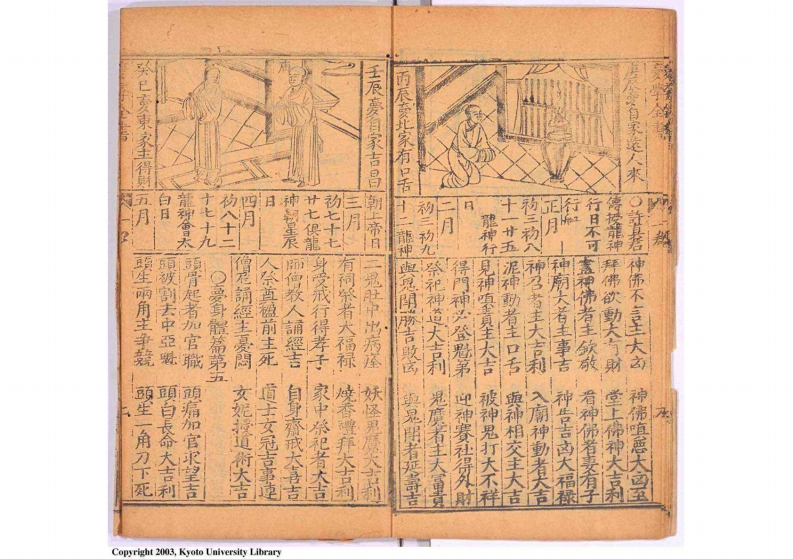 庚辰夢自家遠人來
丙辰夢北家有口舌
○許真君
傳授龍神
行日不可
行船
正月
初三初八
十一廿五
龍神行
日
二月
初三初九
十二龍神
神佛不言主大凶 神佛嗔惡大凶至
拜佛欲動大有財 堂上佛神大吉利
畫神佛者主欽敬 看神佛者妻有子
神廟大者主事吉 神告吉凶大福祿
神召者主大吉利 入廟神動者大吉
泥神動者主口舌 與神相交主大吉
見神嗔責主大吉 被神鬼打大不祥
得門神必登魁第 迎神賽社得外財
祭祀神道大吉利 鬼魔者主大富貴
與鬼鬪勝吉敗凶 與鬼鬪者延壽吉
壬辰夢自家吉昌
癸巳夢東家主得財
朝上帝日
三月
初七十七
廿七俱龍
神朝星辰
日
四月
初八十二
十七十九
龍神會太
白日
五月
二鬼肚中出病痊 妖怪鬼魔大吉利
有祠祭者大福祿 燒香禮拜大吉利
身受戒行得孝子 家中祭祀者大吉
師僧教人誦經吉 自身齋戒大喜吉
人祭奠櫃前主死 道士女冠吉事遠
僧尼誦經主憂悶 女妮授道術大吉
○夢身體篇第五
頭骨起者加官職 頭痛加官求望吉
頭被割去中亞魁 頭白長命大吉利
頭生兩角主爭競 頭生一角刀下死
Copyright 2003, Kyoto University Library